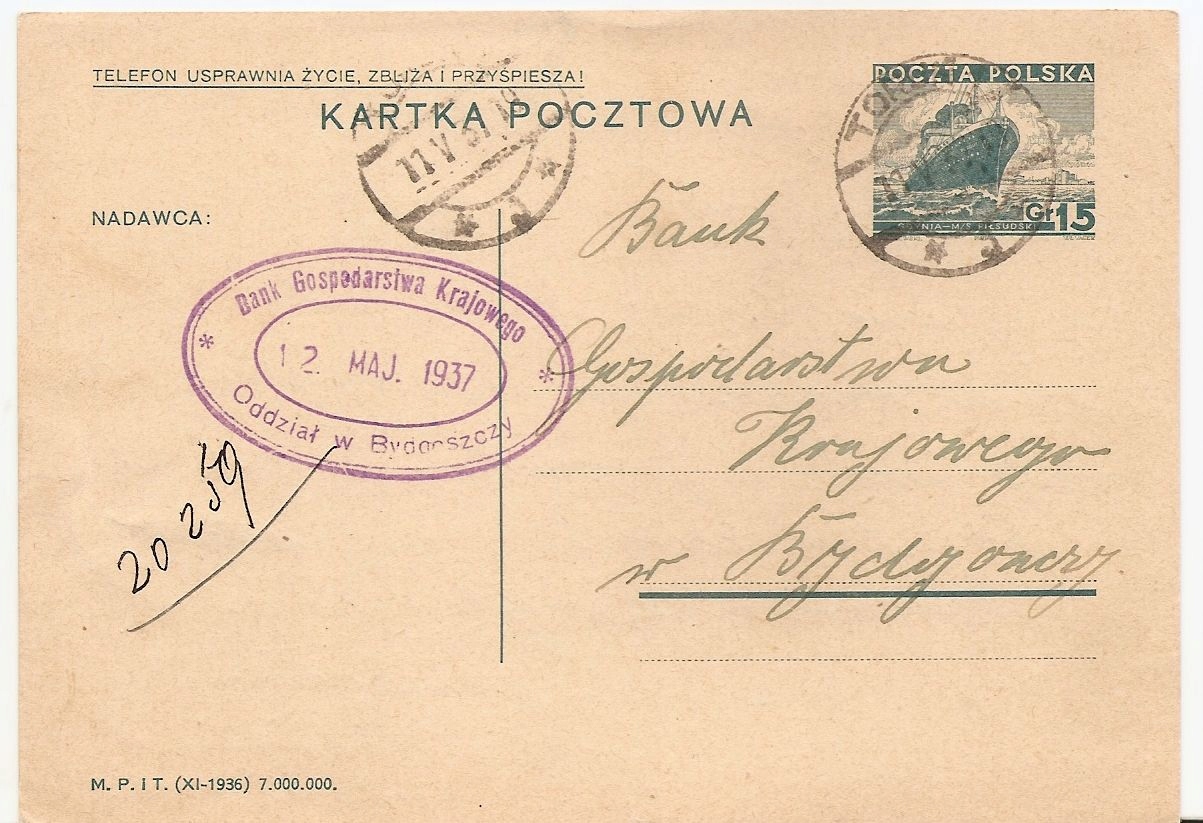 TELEFON USPRAWNIA ŻYCIE, ZBLIŻA I PRZYŚPIESZA!
KARTKA POCZTOWA
POCZTA POLSKA
Gr 15
GDYNIA—M/S PIŁSUDSKI
11 V 37
J
TORUŃ
J
NADAWCA:
Bank Gospodarstwa Krajowego
12. MAJ. 1937
Oddział w Bydgoszczy
20259
Bank
Gospodarstwa
Krajowego
w Bydgoszczy
M. P. i T. (XI-1936) 7.000.000.